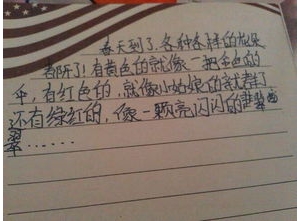 春天到了,各种各样的花果
都开了!有黄色的就像一把金色的
伞,有红色的,就像小姑娘的
还有绿红的,像一颗亮闪闪的翡
翠……